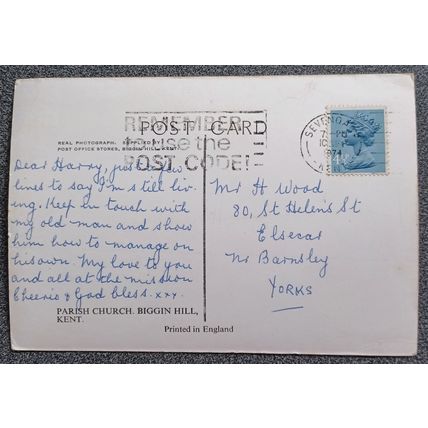 REMEMBER
to use the
POST CODE!
POST CARD
SEVENOAKS
1974
REAL PHOTOGRAPH. SUPPLIED BY
POST OFFICE STORES, BIGGIN HILL, KENT.
Dear Harry, just a few
lines to say I'm still liv-
ing. Keep in touch with
my old man and show
him how to manage on
his own. My love to you
and all at the mission
Cheerio & God bless. xxx
Mr H Wood
80, St Helen's St
Elsecar
Nr Barnsley
YORKS
PARISH CHURCH. BIGGIN HILL,
KENT.
Printed in England